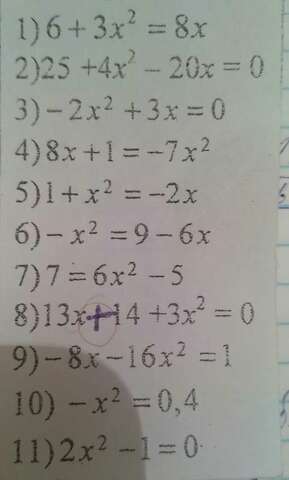 1) 6 + 3x² = 8x
2) 25 + 4x² − 20x = 0
3) − 2x² + 3x = 0
4) 8x + 1 = −7x²
5) 1 + x² = −2x
6) − x² = 9 − 6x
7) 7 = 6x² − 5
8) 13x + 14 + 3x² = 0
9) − 8x − 16x² = 1
10) − x² = 0,4
11) 2x² − 1 = 0